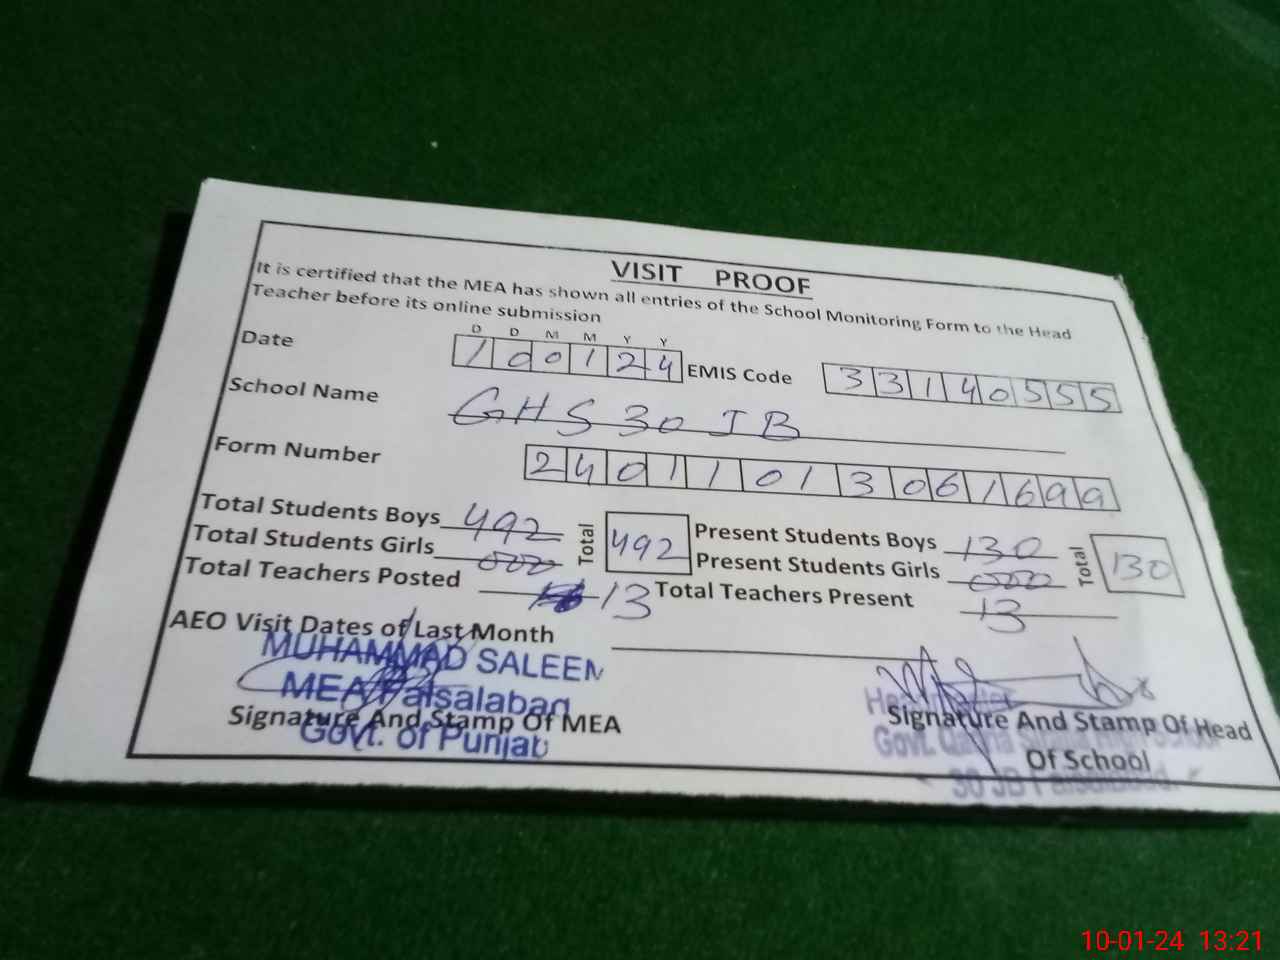 VISIT PROOF
It is certified that the MEA has shown all entries of the School Monitoring Form to the Head
Teacher before its online submission
D D M M Y Y
Date 100124 EMIS Code 33140555
School Name GHS 30 JB
Form Number 24011013061699
Total Students Boys 492 Total 492 Present Students Boys 130 Total 130
Total Students Girls 000 Present Students Girls 000
Total Teachers Posted 13 Total Teachers Present 13
AEO Visit Dates of Last Month
MUHAMMAD SALEEM
MEA Faisalabad
Govt. of Punjab
Signature And Stamp Of MEA
Headmaster
Govt.
30 JB Faisalabad.
Signature And Stamp Of Head
Of School
10-01-24 13:21